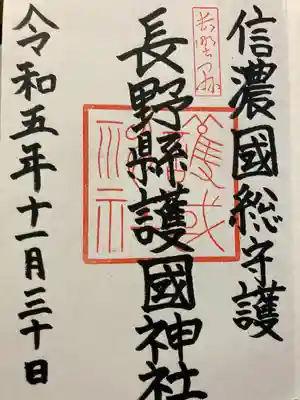 信濃國総守護
長野縣護國神社
令和五年十一月三十日